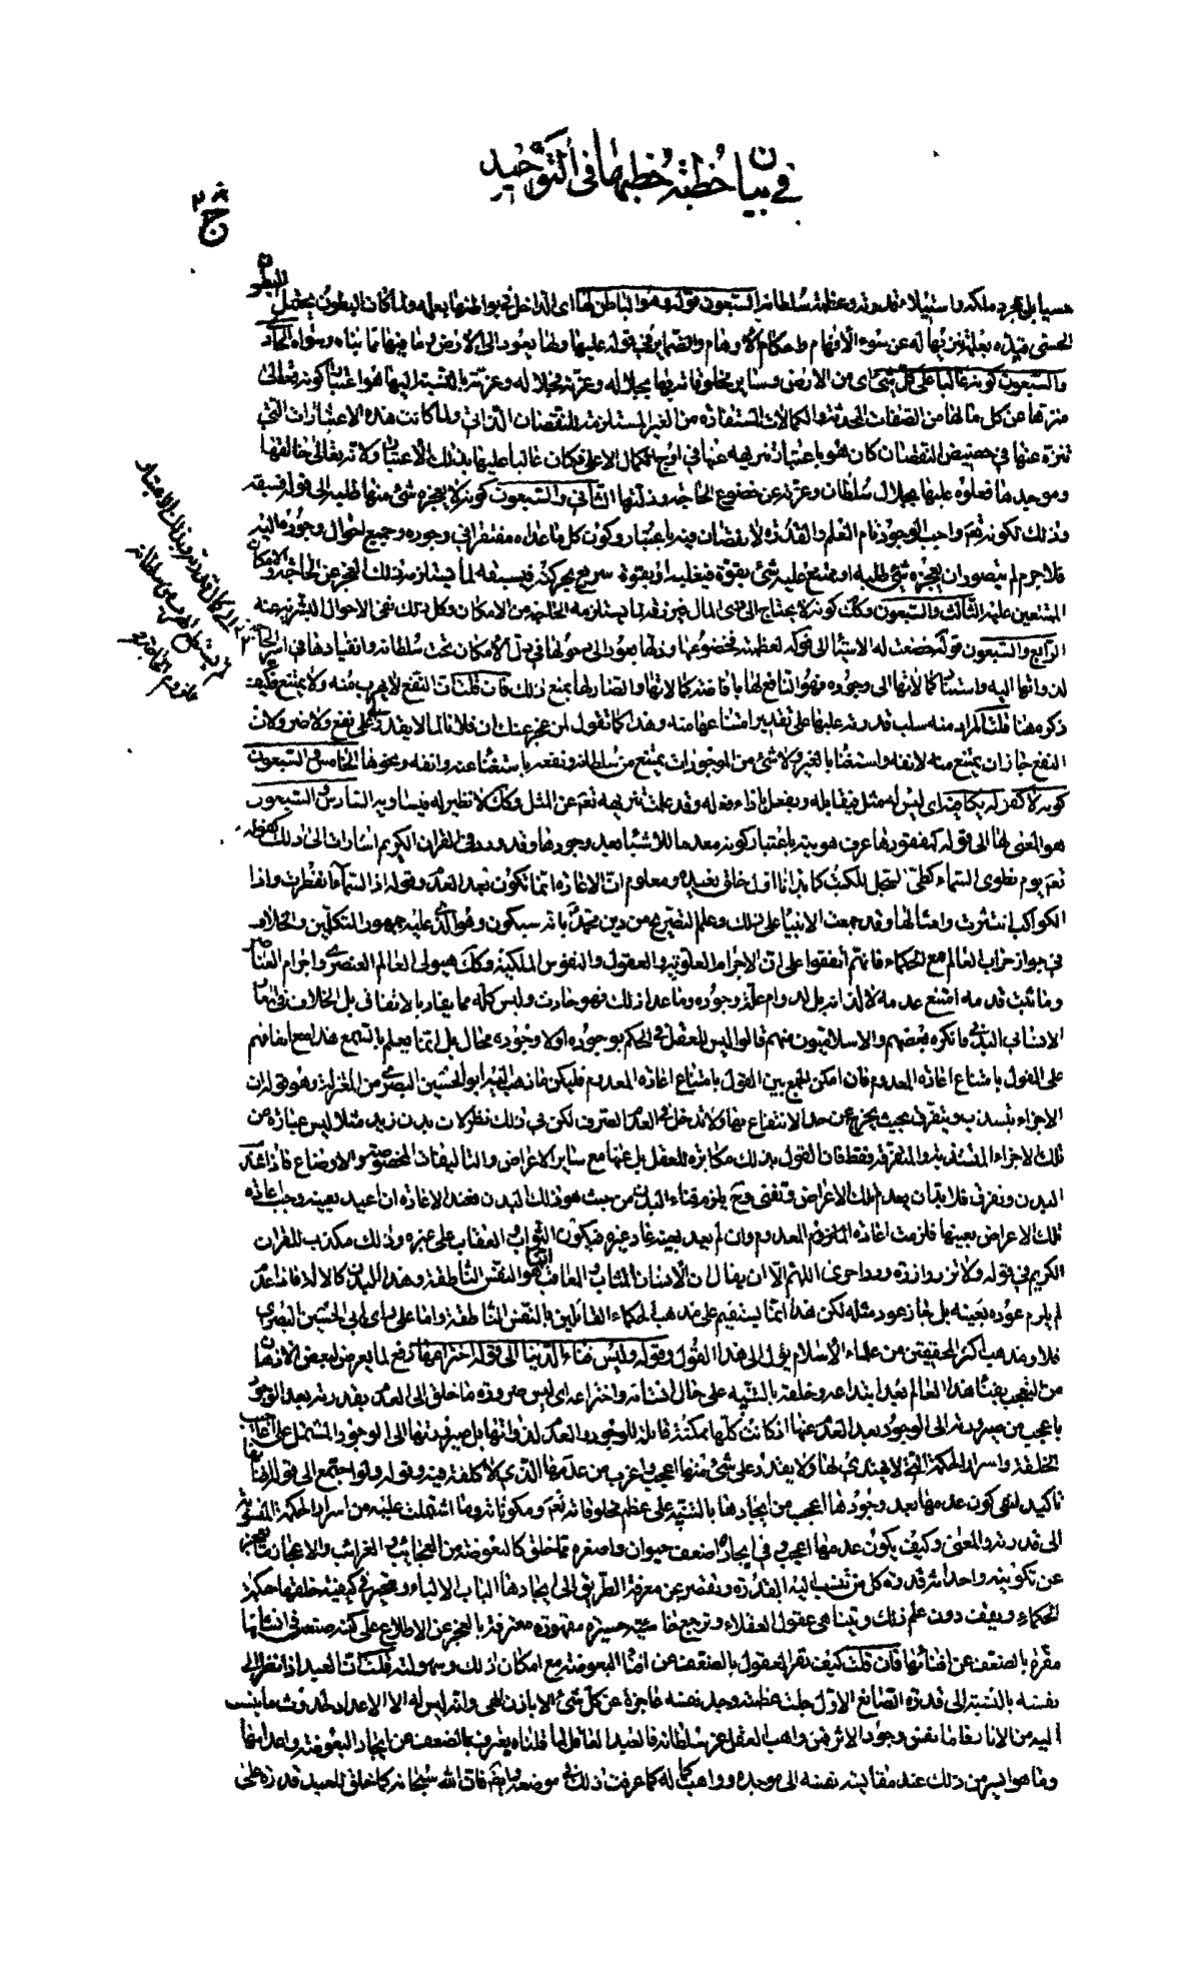 في بيان خطبة خطبها في التوحيد
ج
حسيا بل مجرد ملكه واستيلاء قدرته وعظمة سلطانه السبعون قوله وهو الباطن لها اى الداخل في بواطنها بعلمه ولما كان البطون يحتمل
الحسي قيده بعلمه تنزيها له عن سوء الأفهام واحكام الأوهام والضماير في قوله عليها ولها يعود الى الأرض وما فيها مما بناه وسواه الحادى
والسبعون كونه عاليا على كل شئ اى من الارض وساير مخلوقاته بها بجلاله وعزته فجلاله وعزته بالنسبة اليها هو اعتبار كونه تعالى
منزها عن كل مالها من الصفات المحدثة والكمالات المستفادة من الغير المستلزمة للنقصان الذاتي ولما كانت هذه الاعتبارات التي
تنزه عنها في حضيض النقصان كان هو باعتبار تنزيهه عنها في اوج الكمال الاعلى فكان عاليا عليها بذلك الاعتبار ولانه تعالى خالقها
وموجدها فعلوه عليها بجلال سلطانه وعزته عن خضوع الحاجة وذلتها الثاني والسبعون كونه لا يعجزه شئ منها طلبه الى قوله فيسبقه
وذلك لكونه تعم واجب الوجود تام العلم والقدرة لا نقصان فيه باعتبار وكون كل ما عداه مفتقرا في وجوده وجميع احوال وجوده اليه
فلا جرم لم يتصور ان يعجزه شئ طلبه او يمتنع عليه شئ بقوة فيغلبه او يفوته سريع بحركته فيسبقه لما يستلزم ذلك العجز عن الحاجة والامكان
الممتنعين عليه الثالث والسبعون وكك كونه لا يحتاج الى ذى المال فيرزقه لما يستلزمه الحاجة من الامكان وكل ذلك نفى الاحوال البشرية عنه
الرابع والسبعون قوله خضعت له الاشياء الى قوله لعظمته فخضوعها وذلها يعود الى دخولها في ذل الامكان تحت سلطانه وانقيادها في اسر الحاجة
ذكره هنا قلت المراد منه سلب قدرته عليها على تقدير امتناعها منه وهذا كما تقول لمن عجز عنك ان فلانا لا يقدر لى على نفع ولا ضر ولان
النفع جاز ان يمتنع منه لانفه واستغنائه بالغير ولا شئ من الموجودات يمتنع من سلطانه ونفعه باستغناء عنه وانفه ونحوها الخامس والسبعون
كونه لا كفؤ له يكافيه اى ليس له مثل فيقابله ويفعل بازاء فعله وقد علمت تنزيهه تعم عن المثل وكك لا نظير له فيساويه السادس والسبعون
هو المفنى لها الى قوله كمفقودها عرف هويته باعتبار كونه معدما للاشياء بعد وجودها وقد ورد في القران الكريم اشارات الى ذلك كقوله
تعم يوم نطوى السماء كطي السجل للكتب كما بدانا اول خلق نعيده ومعلوم ان الاعادة انما تكون بعد العدم وقوله اذا السماء انفطرت واذا
الكواكب انتثرت وامثالها وقد اجمعت الانبيا على ذلك وعلم التصريح من دين محمد بانه سيكون وهو الذى عليه جمهور المتكلمين والخلاف
في جواز خراب العالم مع الحكماء فانهم اتفقوا على ان الاجرام العلوية والعقول والنفوس الملكية وكك هيولى العالم العنصرى واجرام العناصر
وما ثبت قدمه امتنع عدمه لا لذاته بل لدوام علة وجوده وما عدا ذلك فهو حادث وليس كله مما يعاد بالاتفاق بل الخلاف في المعاد
الانساني البدني فانكره بعضهم والاسلاميون منهم قالوا ليس للعقل في الحكم بوجوده او لا وجوده مجال بل انما يعلم بالسمع هذا مع اتفاقهم
على القول بامتناع اعادة المعدوم فان امكن الجمع بين القول بامتناع اعادة المعدوم فليكن ما ذهب اليه ابو الحسين البصرى من المعتزلة وهو قوله ان
الاجزاء تتشذب ويتفرق بحيث يخرج عن حد الانتفاع بها ولا تدخل في العدم الصرف لكن في ذلك نظر لان بدن زيد مثلا ليس عبارة عن
تلك الاجزاء المتشذبة والمتفرقة فقط فان القول بذلك مكابرة للعقل بل عنها مع ساير الاعراض والتاليفات المخصوصة والاوضاع فاذا عدم
البدن وتفرق فلا بد ان يعدم تلك الاعراض وتفنى وح يلزم فناء البدن من حيث هو ذلك البدن فعند الاعادة ان اعيد بعينه وجب اعادة
تلك الاعراض بعينها فلزمت اعادة المعدوم وان لم يعد بعينه عاد غيره فيكون الثواب والعقاب على غيره وذلك مكذب للقران
الكريم في قوله ولا تزر وازرة وزر اخرى اللهم الا ان يقال ان الانسان المثاب والمعاقب انما هو النفس الناطقة وهذا البدن كالالة فاذا عدم
لم يلزم عوده بعينه بل جاز عود مثله لكن هذا انما يستقيم على مذهب الحكماء القائلين بالنفس الناطقة واما على راى ابى الحسين البصرى
فلا ومذهب اكثر المحققين من علماء الاسلام يؤل الى هذا القول وقوله وليس فناء الدنيا الى قوله اختراعها دفع لما يعرض لبعض الاذهان
من التعجب بفناء هذا العالم بعد ابتداعه وخلقه بالتنبيه على حال انشائه واختراعه اى ليس صيرورة ما خلق الى العدم بقدرته بعد الوجود
باعجب من صيرورته الى الوجود بعد العدم عنها اذ كانت كلها ممكنة قابلة للوجود والعدم لذواتها بل صيرورتها الى الوجود المشتمل على اعاجيب
الخلقة واسرار الحكمة التي لا يهتدى لها ولا يقدر على شئ منها اعجب واغرب من عدمها الذي لا كلفة فيه وقوله ولو اجتمع الى قوله افنائها
تاكيد لنفى كون عدمها بعد وجودها اعجب من ايجادها بالتنبيه على عظم مخلوقاته تعم ومكوناته وما اشتملت عليه من اسرار الحكمة المنسوبة
الى قدرته والمعنى وكيف يكون عدمها اعجب وفي ايجاد اضعف حيوان واصغره مما خلق كالبعوضة من العجايب والغرائب والاعجاز ما يعجز
عن تكوينه واحداثه قدرة كل من تنسب اليه القدرة وتقصر عن معرفة الطريق الى ايجادها الباب الالباء ويتحير في كيفية خلقها حكمة
الحكماء ويقف دون علم ذلك ويتناهى عقول العقلاء وترجع خاسئة حسيرة مقهورة معترفة بالعجز عن الاطلاع على كنه صنعه في انشائها
مقرة بالضعف عن افنائها فان قلت كيف تقر العقول بالضعف عن افناء البعوضة مع امكان ذلك وسهولته قلت ان العبد اذا نظر الى
نفسه بالنسبة الى قدرة الصانع الاول جلت عظمته وجد نفسه عاجزة عن كل شئ الا باذن الهى وانه ليس له الا الاعداد لحدوث ما ينسب
اليه من الاثار فاما نفس وجود الاثر فمن واهب العقل عز سلطانه فالعبد العاقل لما قلناه يعترف بالضعف عن ايجاد البعوضة واعدامها
وما هو ايسر من ذلك عند مقايسة نفسه الى موجده وواهب كماله كما عرفت ذلك في موضعه وايضا فان الله سبحانه كما خلق للعبد قدرة على